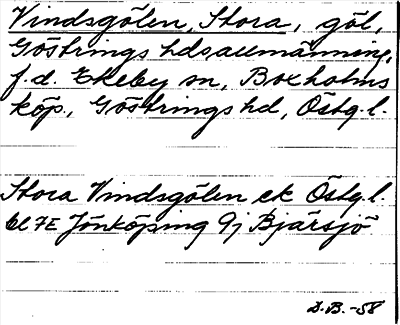 Vindsgölen, Stora, göl,
Göstrings hdsallmänning,
f.d. Ekeby sn, Boxholms
köp., Göstrings hd, Östg.l.
Stora Vindsgölen ek Östg.l.
bl 7E Jönköping 9j Bjärsjö
D.B.-58